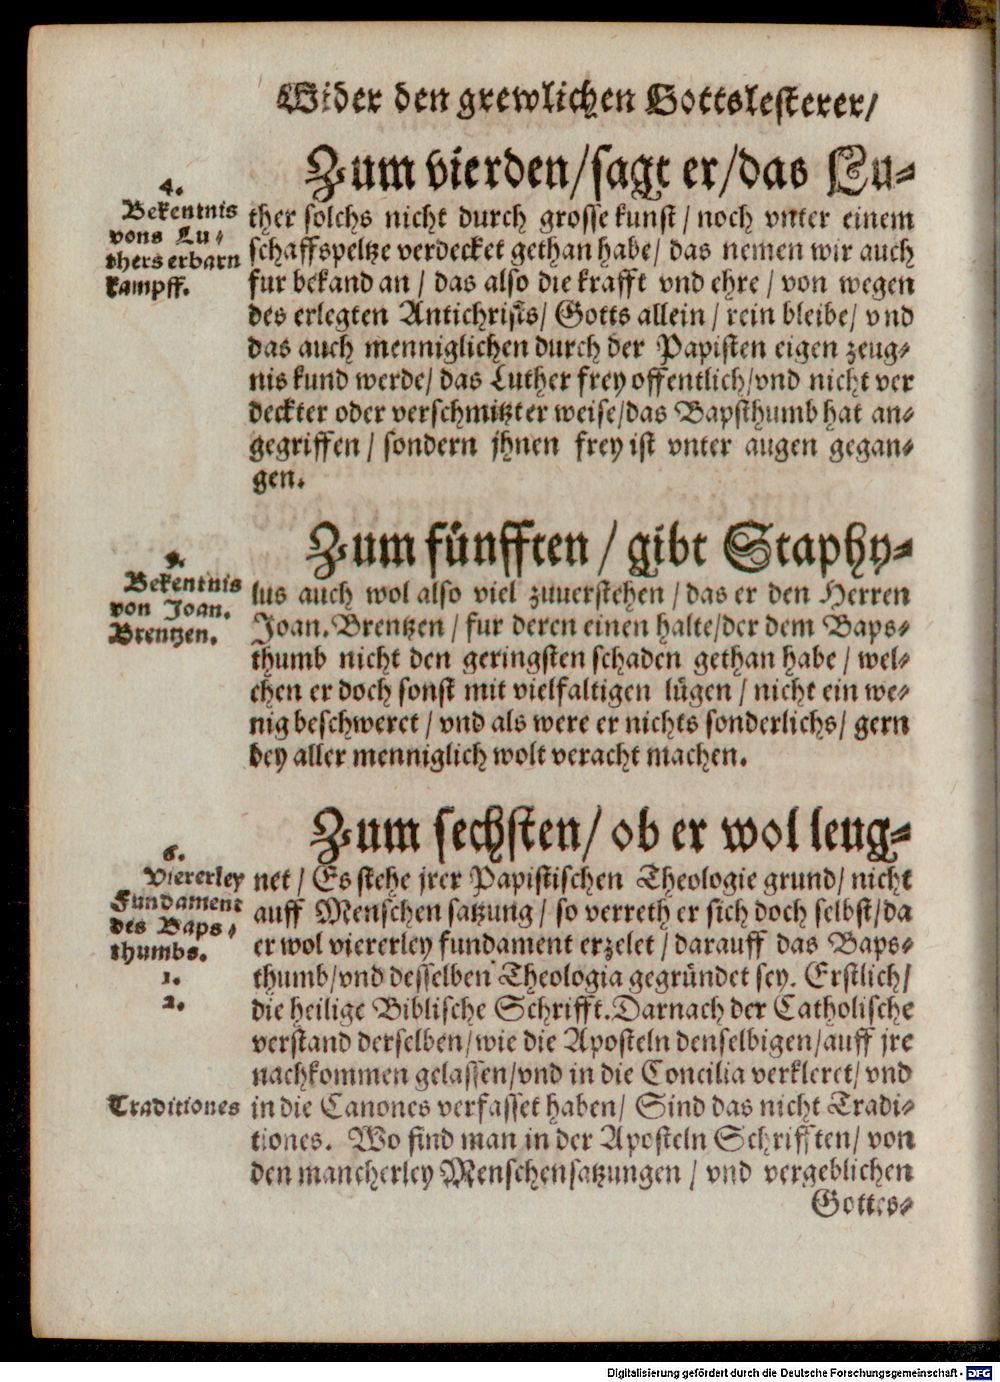 Wider den grewlichen Gottslesterer/
Zum vierden/sagt er/das Lu-
ther solchs nicht durch grosse kunst/noch vnter einem
schaffspeltze verdecket gethan habe/ das nemen wir auch
fur bekand an / das also die krafft vnd ehre / von wegen
des erlegten Antichrists/ Gotts allein / rein bleibe/ vnd
das auch menniglichen durch der Papisten eigen zeug-
nis kund werde/ das Luther frey offentlich/vnd nicht ver
deckter oder verschmitzter weise/das Bapsthumb hat an-
gegriffen / sondern jhnen frey ist vnter augen gegan-
gen.
4.
Bekentnis
vons Lu-
thers erbarn
kampff.
Zum fünfften / gibt Staphy-
lus auch wol also viel zuuerstehen / das er den Herren
Joan. Brentzen / fur deren einen halte/der dem Baps-
thumb nicht den geringsten schaden gethan habe / wel-
chen er doch sonst mit vielfaltigen lügen / nicht ein we-
nig beschweret / vnd als were er nichts sonderlichs/ gern
bey aller menniglich wolt veracht machen.
5.
Bekentnis
von Joan.
Brentzen.
Zum sechsten/ ob er wol leug-
net / Es stehe jrer Papistischen Theologie grund/ nicht
auff Menschen satzung / so verreth er sich doch selbst/da
er wol viererley fundament erzelet / darauff das Baps-
thumb/vnd desselben Theologia gegründet sey. Erstlich/
die heilige Biblische Schrifft. Darnach der Catholische
verstand derselben/wie die Aposteln denselbigen/auff jre
nachkommen gelassen/vnd in die Concilia verkleret/ vnd
in die Canones verfasset haben/ Sind das nicht Tradi-
tiones. Wo find man in der Aposteln Schrifften/ von
den mancherley Menschensatzungen / vnd vergeblichen
Gottes-
6.
Viererley
Fundament
des Baps-
thumbs.
1.
2.
Traditiones
Digitalisierung gefördert durch die Deutsche Forschungsgemeinschaft - DFG